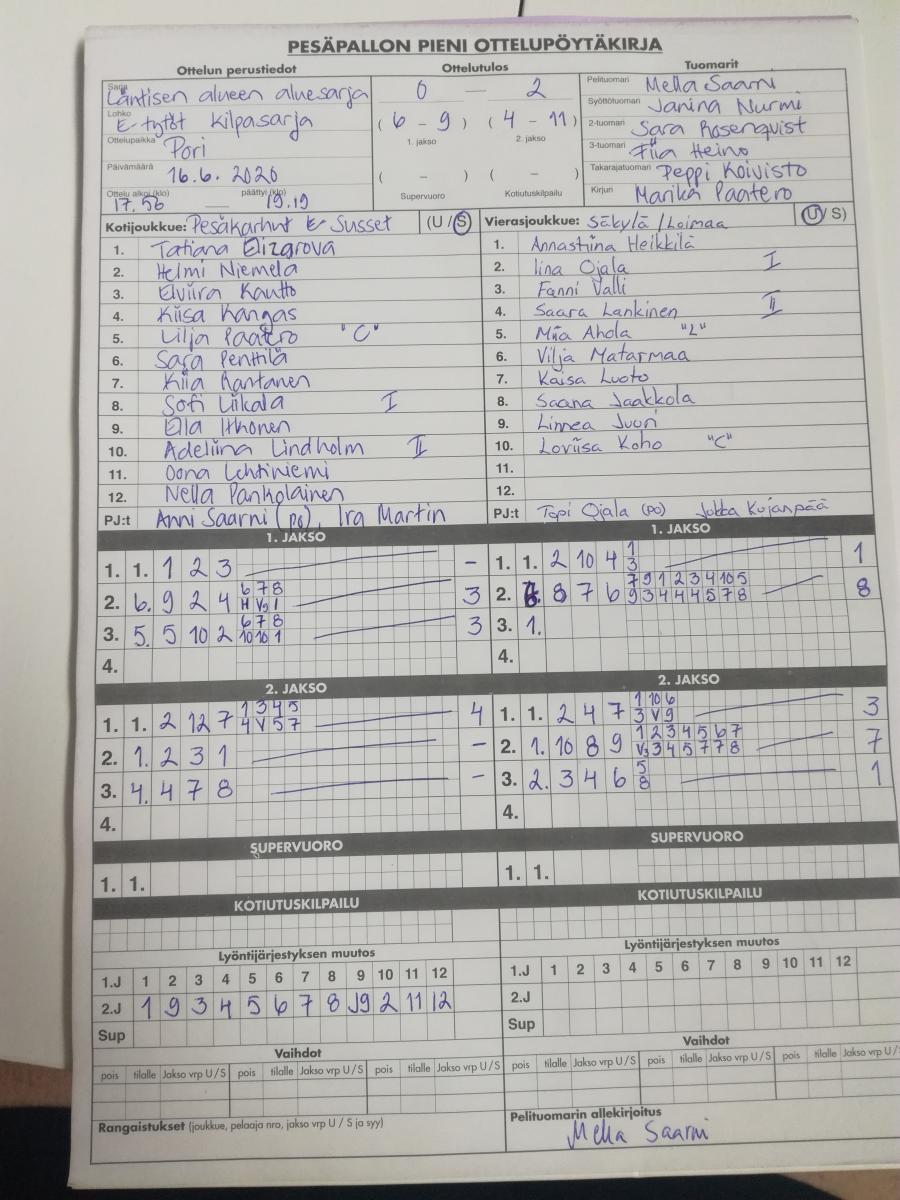 PESÄPALLON PIENI OTTELUPÖYTÄKIRJA
Ottelun perustiedot Ottelutulos Tuomarit
Sarja Läntisen alueen aluesarja 0 — 2 Pelituomari Mella Saarni
Lohko E-tytöt Kilpasarja ( 6 - 9 ) ( 4 - 11 ) Syöttötuomari Janina Nurmi
1. jakso 2. jakso 2-tuomari Sara Rosenqvist
Ottelupaikka Pori 3-tuomari Fiia Heino
Päivämäärä 16.6. 2020 ( - ) ( - ) Takarajatuomari Peppi Koivisto
Ottelu alkoi (klo) 17.56 — päättyi (klo) 19.19 Supervuoro Kotiutuskilpailu Kirjuri Marika Paatero
Kotijoukkue: Pesäkarhut E- Susset (U / S) Vierasjoukkue: Säkylä / Loimaa (U / S)
1. Tatiana Elizgrova 1. Annastiina Heikkilä
2. Helmi Niemelä 2. Iina Ojala I
3. Elviira Kautto 3. Fanni Valli
4. Kiisa Kangas 4. Saara Lankinen II
5. Lilja Paatero "C" 5. Miia Ahola "L"
6. Sara Penttilä 6. Vilja Matarmaa
7. Kiia Rantanen 7. Kaisa Luoto
8. Sofi Liikala I 8. Saana Jaakkola
9. Ella Ithonen 9. Linnea Juori
10. Adeliina Lindholm II 10. Loviisa Koho "C"
11. Oona Lehtiniemi 11.
12. Nella Pankolainen 12.
PJ:t Anni Saarni (po), Ira Martin PJ:t Topi Ojala (po) Jukka Kujanpää
1. JAKSO 1. JAKSO
1. 1. 1 2 3 - 1. 1. 2 10 4 1 1
3
2. 6. 9 2 4 6 7 8 3 2. 8 7 6 7 9 1 2 3 4 10 5 8
H V9 1 9 3 4 4 4 5 7 8
3. 5. 5 10 2 6 7 8 3 3. 1.
10 10 1
4. 4.
2. JAKSO 2. JAKSO
1. 1. 2 12 7 1 3 4 5 4 1. 1. 2 4 7 1 10 6 3
4 V 5 7 3 V 9
2. 1. 2 3 1 - 2. 1. 10 8 9 1 2 3 4 5 6 7 7
V3 3 4 5 7 7 8
3. 4. 4 7 8 - 3. 2. 3 4 6 5 1
8
4. 4.
SUPERVUORO SUPERVUORO
1. 1. 1. 1.
KOTIUTUSKILPAILU KOTIUTUSKILPAILU
Lyöntijärjestyksen muutos Lyöntijärjestyksen muutos
1.J 1 2 3 4 5 6 7 8 9 10 11 12 1.J 1 2 3 4 5 6 7 8 9 10 11 12
2.J 1 9 3 4 5 6 7 8 2 11 12 2.J
Sup Sup
Vaihdot Vaihdot
pois tilalle Jakso vrp U / S pois tilalle Jakso vrp U / S pois tilalle Jakso vrp U / S pois tilalle Jakso vrp U / S pois tilalle Jakso vrp U / S pois tilalle Jakso vrp U / S
Rangaistukset (joukkue, pelaaja nro, jakso vrp U / S ja syy) Pelituomarin allekirjoitus
Mella Saarni